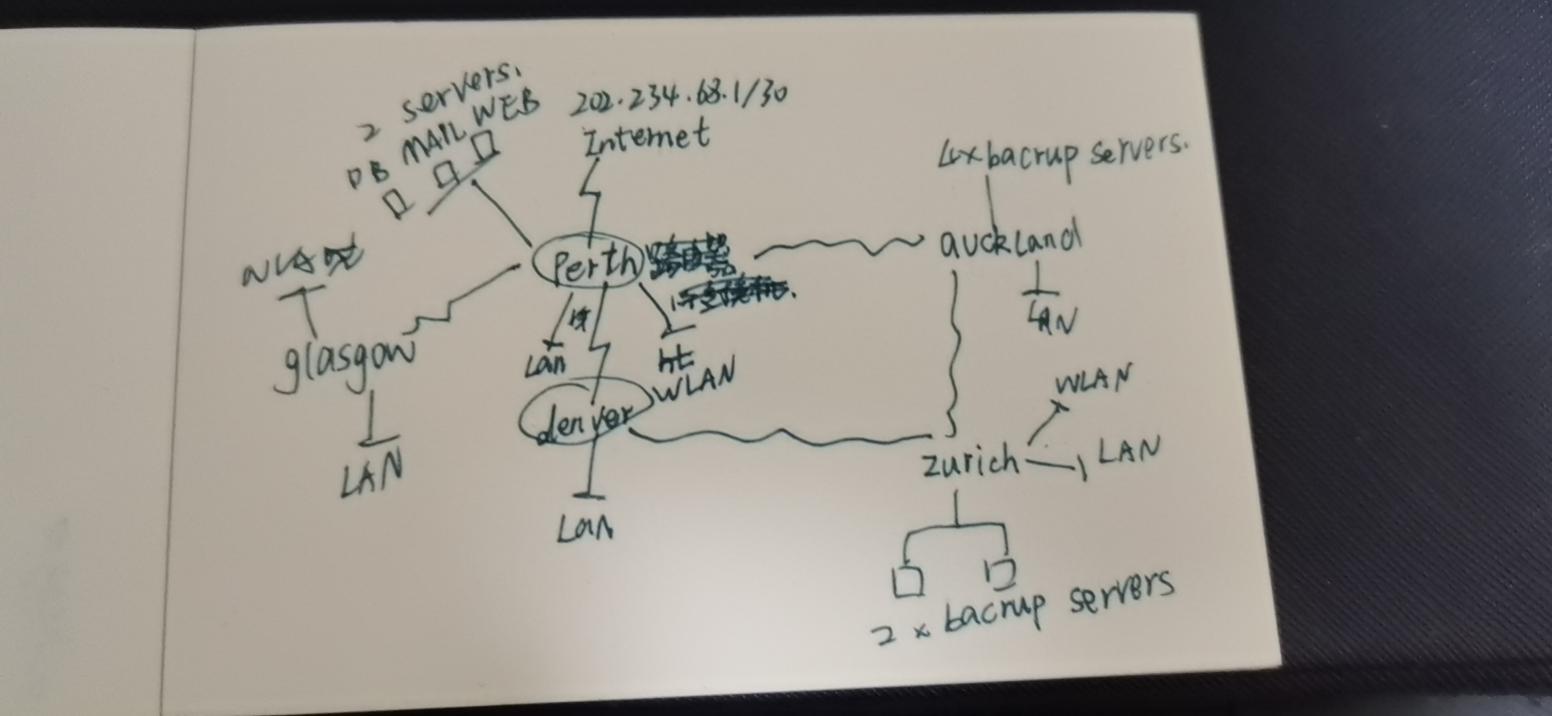 2 servers.
DB MAIL WEB
202.234.68.1/30
Internet
4x bacrup servers.
Perth
auckland
LAN
glasgow
Lan
WLAN
LAN
denver
Lan
zurich
WLAN
LAN
2 x bacrup servers